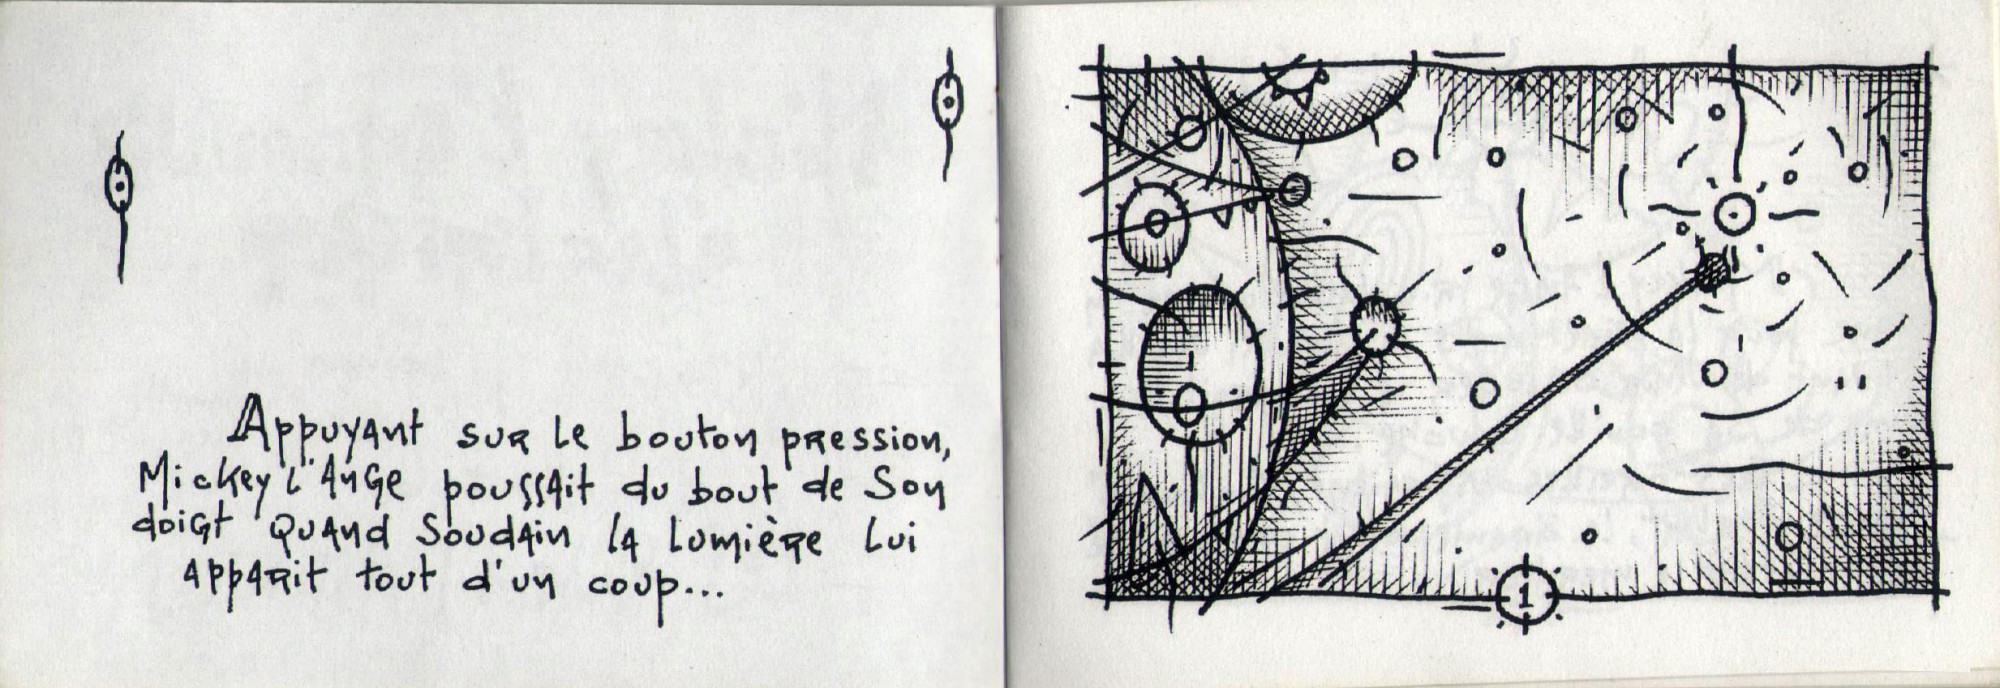 Appuyant sur le bouton pression,
Mickey l'Ange poussait du bout de son
doigt quand soudain la lumière lui
apparit tout d'un coup...
1